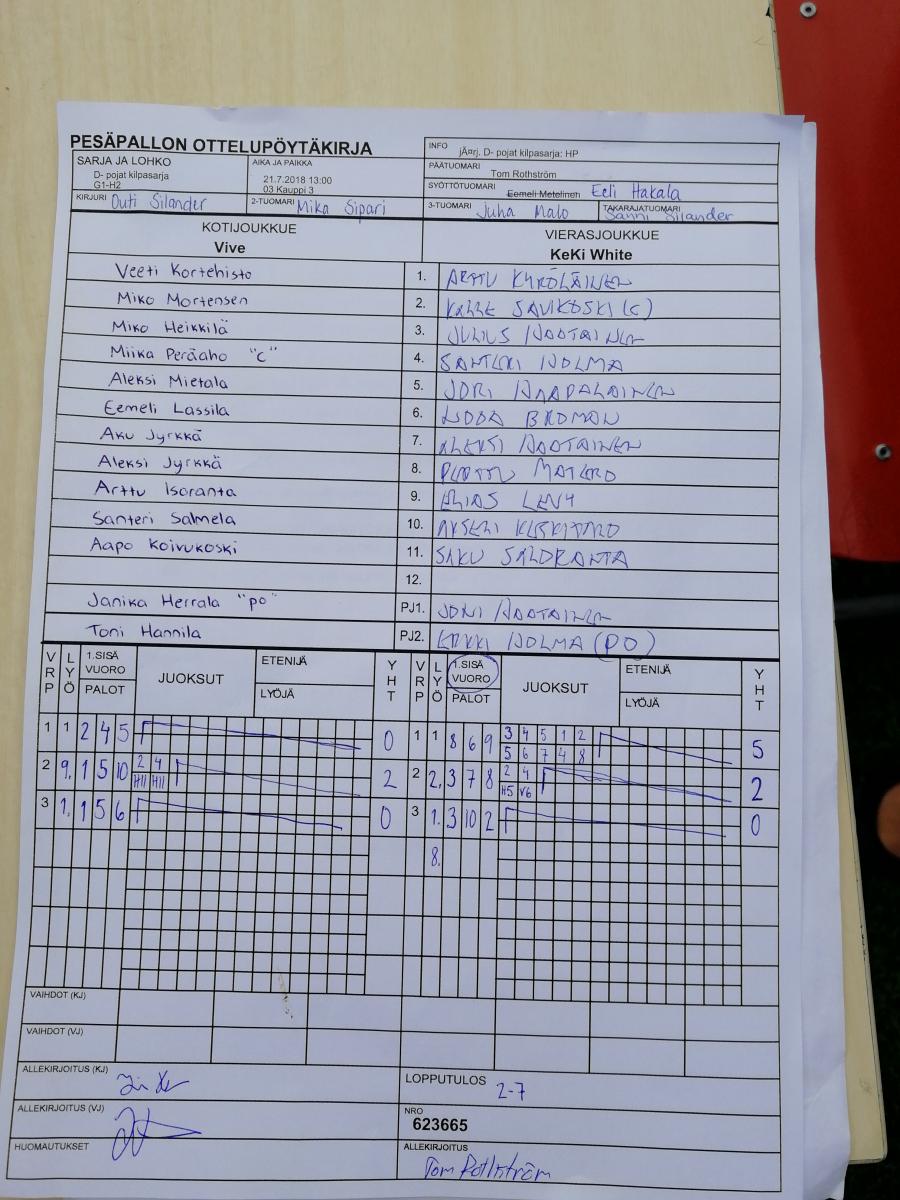 PESÄPALLON OTTELUPÖYTÄKIRJA
INFO jÃ¤rj. D- pojat kilpasarja: HP
SARJA JA LOHKO
D- pojat kilpasarja
G1-H2
AIKA JA PAIKKA
21.7.2018 13:00
03 Kauppi 3
PÄÄTUOMARI Tom Rothström
SYÖTTÖTUOMARI Eemeli Metelinen Eeli Hakala
KIRJURI Outi Silander
2-TUOMARI Mika Sipari
3-TUOMARI Juha Malo
TAKARAJATUOMARI Sanni Silander
KOTIJOUKKUE
Vive
VIERASJOUKKUE
KeKi White
Veeti Kortehisto 1. ARTTU KYRÖLÄINEN
Miko Mortensen 2. KALLE SAVIKOSKI (C)
Miko Heikkilä 3. JULIUS HAATAINEN
Miika Peräaho "C" 4. SANTERI HOLMA
Aleksi Mietala 5. JORI HAAPALAINEN
Eemeli Lassila 6. BROMAN
Aku Jyrkkä 7. ALEKSI HAATAINEN
Aleksi Jyrkkä 8. PERTTU MATERO
Arttu Isoranta 9. ELIAS LEVY
Santeri Salmela 10. AKSELI KESKITALO
Aapo Koivukoski 11. SAKU SALORANTA
12.
Janika Herrala "po" PJ1. JONI HAATAINEN
Toni Hannila PJ2. ERKKI HOLMA (PO)
VRP LYÖ 1.SISÄ VUORO PALOT JUOKSUT ETENIJÄ LYÖJÄ YHT VRP LYÖ 1.SISÄ VUORO PALOT JUOKSUT ETENIJÄ LYÖJÄ YHT
1 1 2 4 5 0 1 1 8 6 9 3 4 5 1 2 5
5 6 7 4 8
2 9. 1 5 10 2 4 2 2 2. 3 7 8 2 4 2
H11 H11 H5 V6
3 1. 1 5 6 0 3 1. 3 10 2 0
8.
VAIHDOT (KJ)
VAIHDOT (VJ)
ALLEKIRJOITUS (KJ)
LOPPUTULOS 2-7
ALLEKIRJOITUS (VJ)
NRO
623665
HUOMAUTUKSET
ALLEKIRJOITUS
Tom Rothström